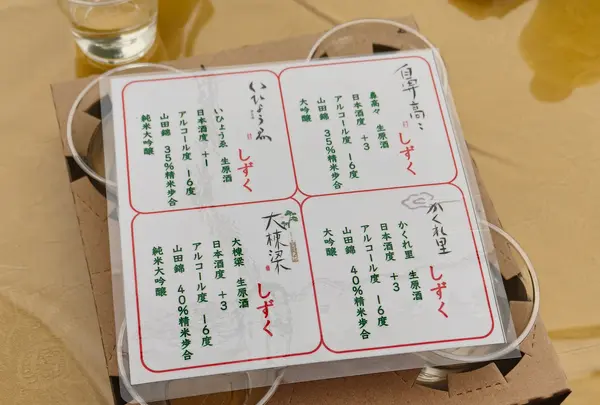 鼻高々
しずく
鼻高々 生原酒
日本酒度 +3
アルコール度 16度
山田錦 35%精米歩合
大吟醸
いひょうゑ
しずく
いひょうゑ 生原酒
日本酒度 +1
アルコール度 16度
山田錦 35%精米歩合
純米大吟醸
かくれ里
しずく
かくれ里 生原酒
日本酒度 +3
アルコール度 16度
山田錦 40%精米歩合
大吟醸
大棟梁
しずく
大棟梁 生原酒
日本酒度 +3
アルコール度 16度
山田錦 40%精米歩合
純米大吟醸